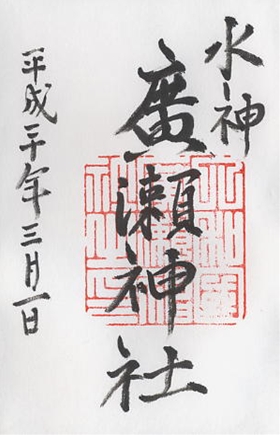 水神
廣瀬神社
平成三十年三月一日